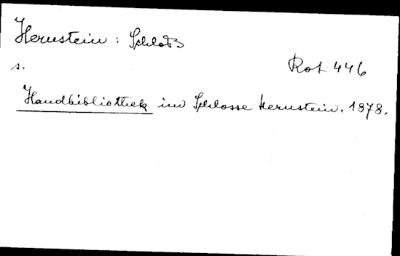 Hernstein: Schloß
s. Rot 446
Handbibliothek im Schlosse Hernstein. 1878.